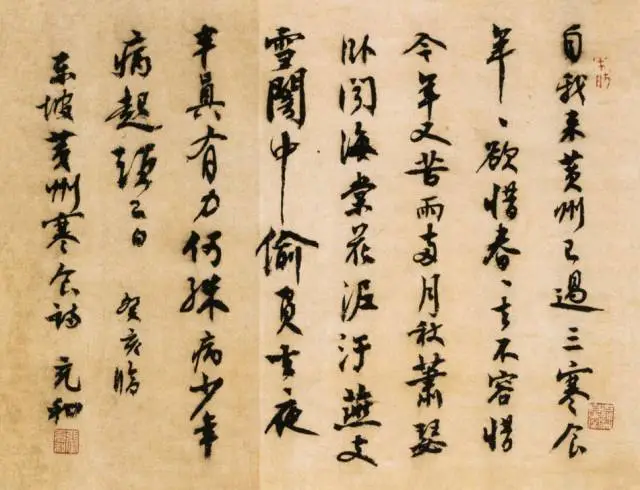 自我来黄州已過三寒食
年々欲惜春々去不容惜
今年又苦雨两月秋蕭瑟
卧闻海棠花泥汙燕支
雪闇中偷負去夜
半真有力何殊病少年
病起頭已白 癸亥臨
东坡黄州寒食詩 充和